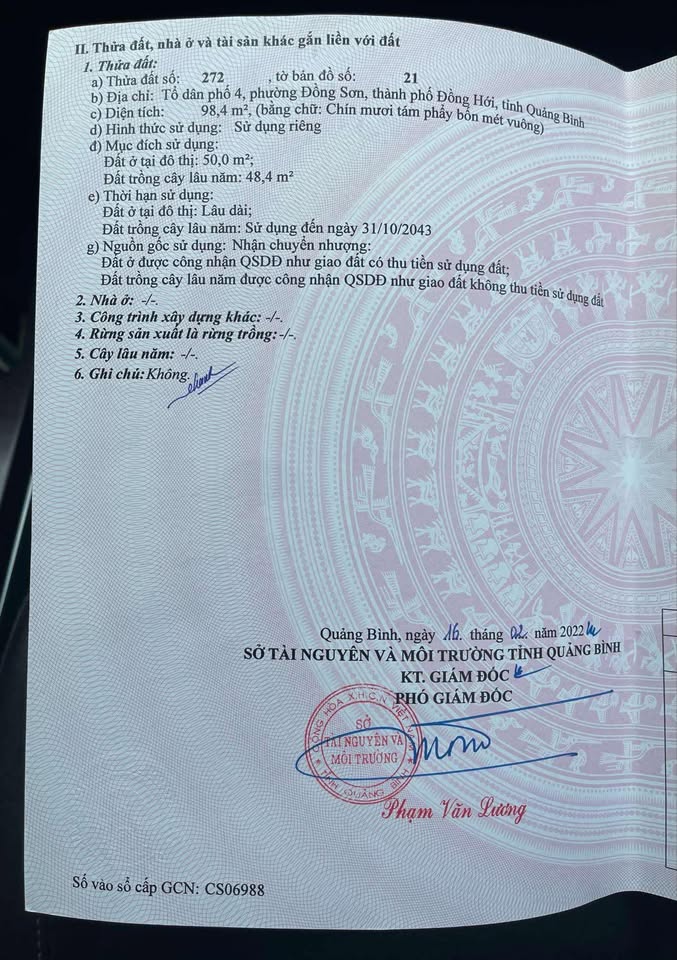 II. Thửa đất, nhà ở và tài sản khác gắn liền với đất
1. Thửa đất:
a) Thửa đất số: 272 , tờ bán đồ số: 21
b) Địa chỉ: Tổ dân phố 4, phường Đồng Sơn, thành phố Đồng Hới, tỉnh Quảng Bình
c) Diện tích: 98,4 m², (bằng chữ: Chín mươi tám phẩy bốn mét vuông)
d) Hình thức sử dụng: Sử dụng riêng
đ) Mục đích sử dụng:
Đất ở tại đô thị: 50,0 m²;
Đất trồng cây lâu năm: 48,4 m²
e) Thời hạn sử dụng:
Đất ở tại đô thị: Lâu dài;
Đất trồng cây lâu năm: Sử dụng đến ngày 31/10/2043
g) Nguồn gốc sử dụng: Nhận chuyển nhượng:
Đất ở được công nhận QSDĐ như giao đất có thu tiền sử dụng đất;
Đất trồng cây lâu năm được công nhận QSDĐ như giao đất không thu tiền sử dụng đất
2. Nhà ở: -/-.
3. Công trình xây dựng khác: -/-.
4. Rừng sản xuất là rừng trồng: -/-.
5. Cây lâu năm: -/-.
6. Ghi chú: Không.
Quảng Bình, ngày 16. tháng 02. năm 2022
SỞ TÀI NGUYÊN VÀ MÔI TRƯỜNG TỈNH QUẢNG BÌNH
KT. GIÁM ĐỐC
PHÓ GIÁM ĐỐC
CỘNG HÒA X.H.C.N VIỆT NAM
SỞ
TÀI NGUYÊN VÀ
MÔI TRƯỜNG
TỈNH QUẢNG BÌNH
Phạm Văn Lương
Số vào sổ cấp GCN: CS06988